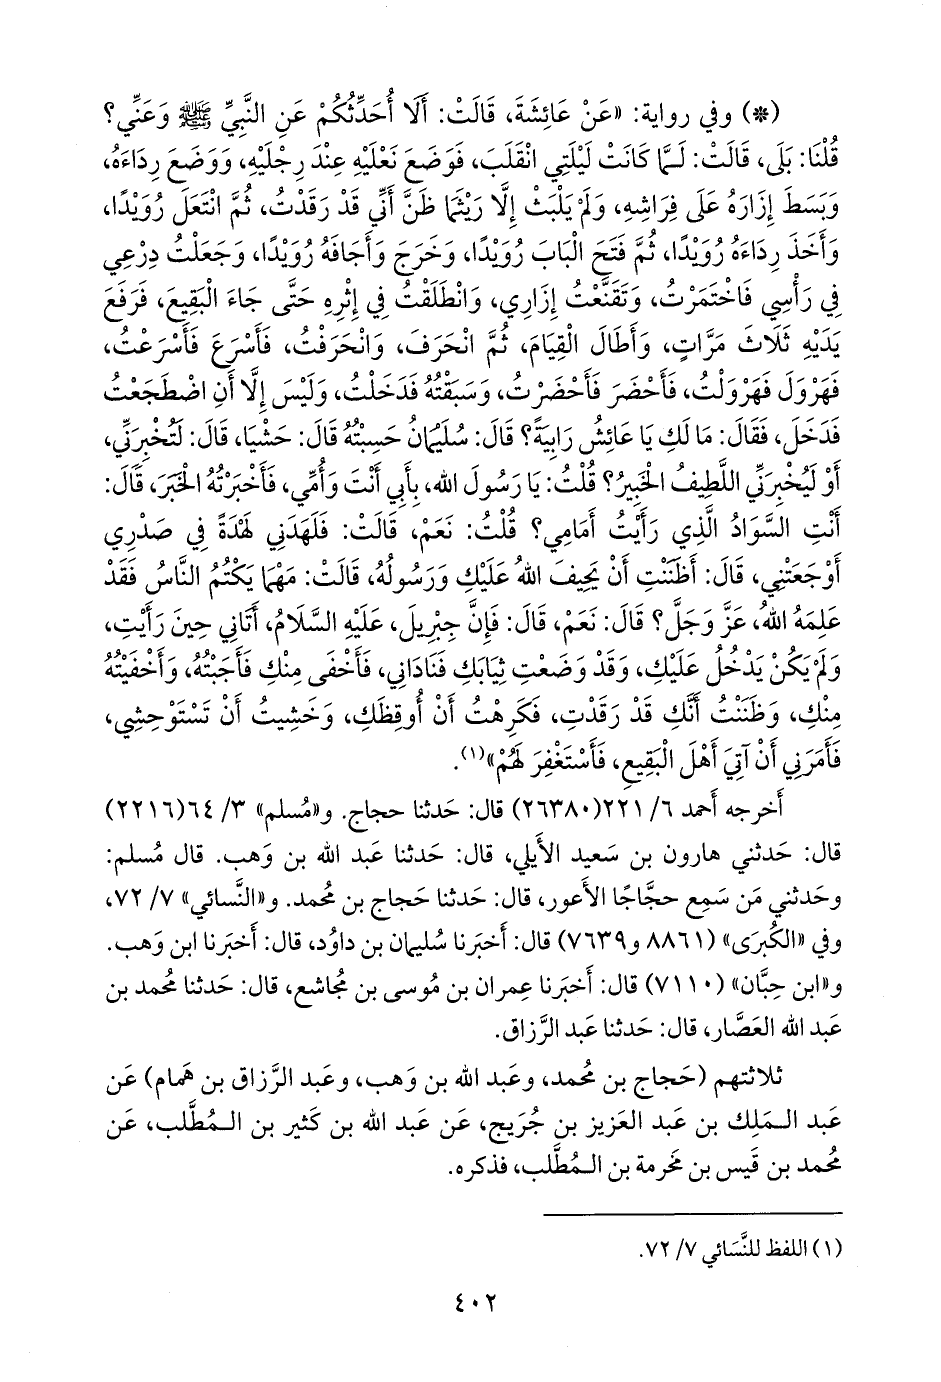 (*) وفي رواية: «عَنْ عَائِشَةَ، قَالَتْ: أَلَا أُحَدِّثُكُمْ عَنِ النَّبِيِّ ﷺ وَعَنِّي؟
قُلْنَا: بَلَى، قَالَتْ: لَـمَّا كَانَتْ لَيْلَتِي انْقَلَبَ، فَوَضَعَ نَعْلَيْهِ عِنْدَ رِجْلَيْهِ، وَوَضَعَ رِدَاءَهُ،
وَبَسَطَ إِزَارَهُ عَلَى فِرَاشِهِ، وَلَمْ يَلْبَثْ إِلَّا رَيْثَمَا ظَنَّ أَنِّي قَدْ رَقَدْتُ، ثُمَّ انْتَعَلَ رُوَيْدًا،
وَأَخَذَ رِدَاءَهُ رُوَيْدًا، ثُمَّ فَتَحَ الْبَابَ رُوَيْدًا، وَخَرَجَ وَأَجَافَهُ رُوَيْدًا، وَجَعَلْتُ دِرْعِي
فِي رَأْسِي فَاخْتَمَرْتُ، وَتَقَنَّعْتُ إِزَارِي، وَانْطَلَقْتُ فِي إِثْرِهِ حَتَّى جَاءَ الْبَقِيعَ، فَرَفَعَ
يَدَيْهِ ثَلَاثَ مَرَّاتٍ، وَأَطَالَ الْقِيَامَ، ثُمَّ انْحَرَفَ، وَانْحَرَفْتُ، فَأَسْرَعَ فَأَسْرَعْتُ،
فَهَرْوَلَ فَهَرْوَلْتُ، فَأَحْضَرَ فَأَحْضَرْتُ، وَسَبَقْتُهُ فَدَخَلْتُ، وَلَيْسَ إِلَّا أَنِ اضْطَجَعْتُ
فَدَخَلَ، فَقَالَ: مَا لَكِ يَا عَائِشُ رَابِيَةً؟ قَالَ: سُلَيْمَانُ حَسِبْتُهُ قَالَ: حَشْيَا، قَالَ: لَتُخْبِرَنِّي،
أَوْ لَيُخْبِرَنِّي اللَّطِيفُ الْخَبِيرُ؟ قُلْتُ: يَا رَسُولَ الله، بِأَبِي أَنْتَ وَأُمِّي، فَأَخْبَرْتُهُ الْخَبَرَ، قَالَ:
أَنْتِ السَّوَادُ الَّذِي رَأَيْتُ أَمَامِي؟ قُلْتُ: نَعَمْ، قَالَتْ: فَلَهَدَنِي لَهْدَةً فِي صَدْرِي
أَوْجَعَتْنِي، قَالَ: أَظَنَنْتِ أَنْ يَحِيفَ اللهُ عَلَيْكِ وَرَسُولُهُ، قَالَتْ: مَهْمَا يَكْتُمُ النَّاسُ فَقَدْ
عَلِمَهُ اللهُ، عَزَّ وَجَلَّ؟ قَالَ: نَعَمْ، قَالَ: فَإِنَّ جِبْرِيلَ، عَلَيْهِ السَّلَامُ، أَتَانِي حِينَ رَأَيْتِ،
وَلَمْ يَكُنْ يَدْخُلُ عَلَيْكِ، وَقَدْ وَضَعْتِ ثِيَابَكِ فَنَادَانِي، فَأَخْفَى مِنْكِ فَأَجَبْتُهُ، وَأَخْفَيْتُهُ
مِنْكِ، وَظَنَنْتُ أَنَّكِ قَدْ رَقَدْتِ، فَكَرِهْتُ أَنْ أُوقِظَكِ، وَخَشِيتُ أَنْ تَسْتَوْحِشِي،
فَأَمَرَنِي أَنْ آتِيَ أَهْلَ الْبَقِيعِ، فَأَسْتَغْفِرَ لَهُمْ»(١).
أَخرجه أَحمد ٦/ ٢٢١(٢٦٣٨٠) قال: حَدثنا حجاج. و«مُسلم» ٣/ ٦٤(٢٢١٦)
قال: حَدثني هارون بن سَعيد الأَيلي، قال: حَدثنا عَبد الله بن وَهب. قال مُسلم:
وحَدثني مَن سَمِع حجَّاجًا الأَعور، قال: حَدثنا حَجاج بن مُحمد. و«النَّسائي» ٧/ ٧٢،
وفي «الكُبرَى» (٨٨٦١ و٧٦٣٩) قال: أَخبَرنا سُليمان بن داوُد، قال: أَخبَرنا ابن وَهب.
و«ابن حِبَّان» (٧١١٠) قال: أَخبَرنا عِمران بن مُوسى بن مُجاشع، قال: حَدثنا مُحمد بن
عَبد الله العَصَّار، قال: حَدثنا عَبد الرَّزاق.
ثلاثتهم (حَجاج بن مُحمد، وعَبد الله بن وَهب، وعَبد الرَّزاق بن هَمام) عَن
عَبد الـمَلِك بن عَبد العَزيز بن جُرَيج، عَن عَبد الله بن كَثير بن الـمُطَّلب، عَن
مُحمد بن قَيس بن مَخرمة بن الـمُطَّلب، فذكره.
(١) اللفظ للنَّسَائي ٧/ ٧٢.
٤٠٢